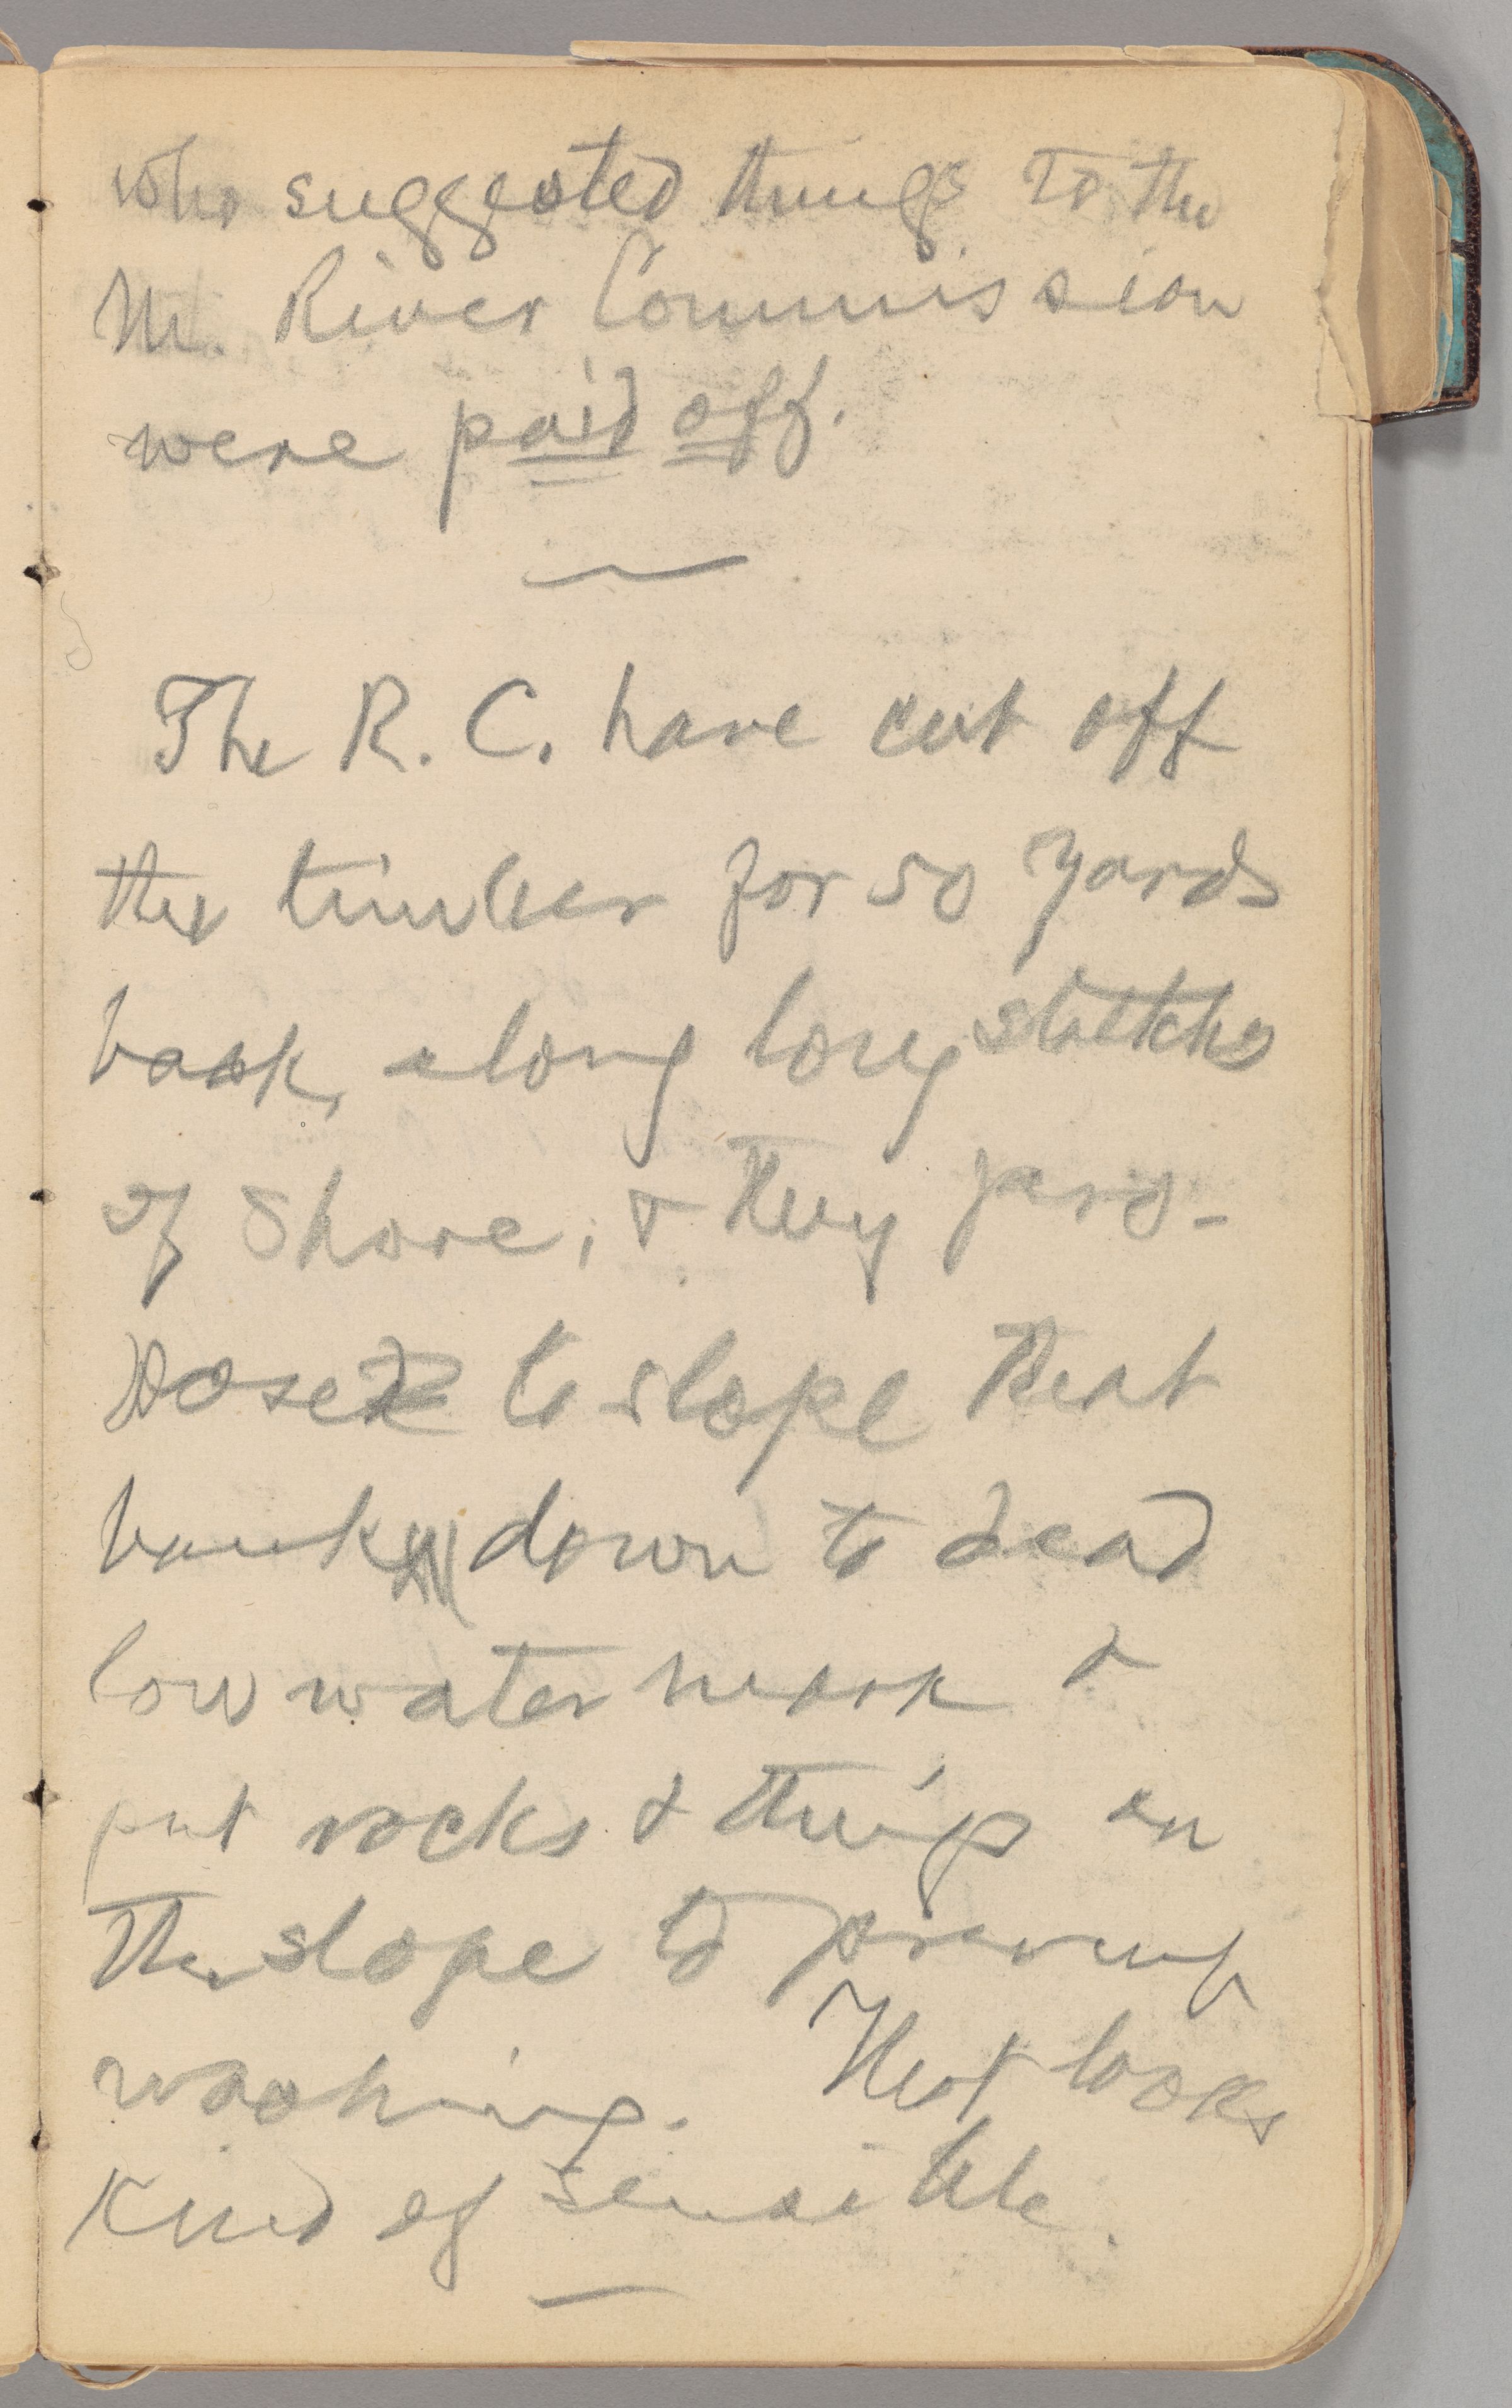 who suggested things to the
M. River Commission
were paid off.
The R. C. have cut off
the timber for 50 yards
back, along long stretches
of shore, & they pro-
pose to slope that
bank down to dead
low water mark &
put rocks & things on
the slope to prevent
washing. That looks
kind of sensible.